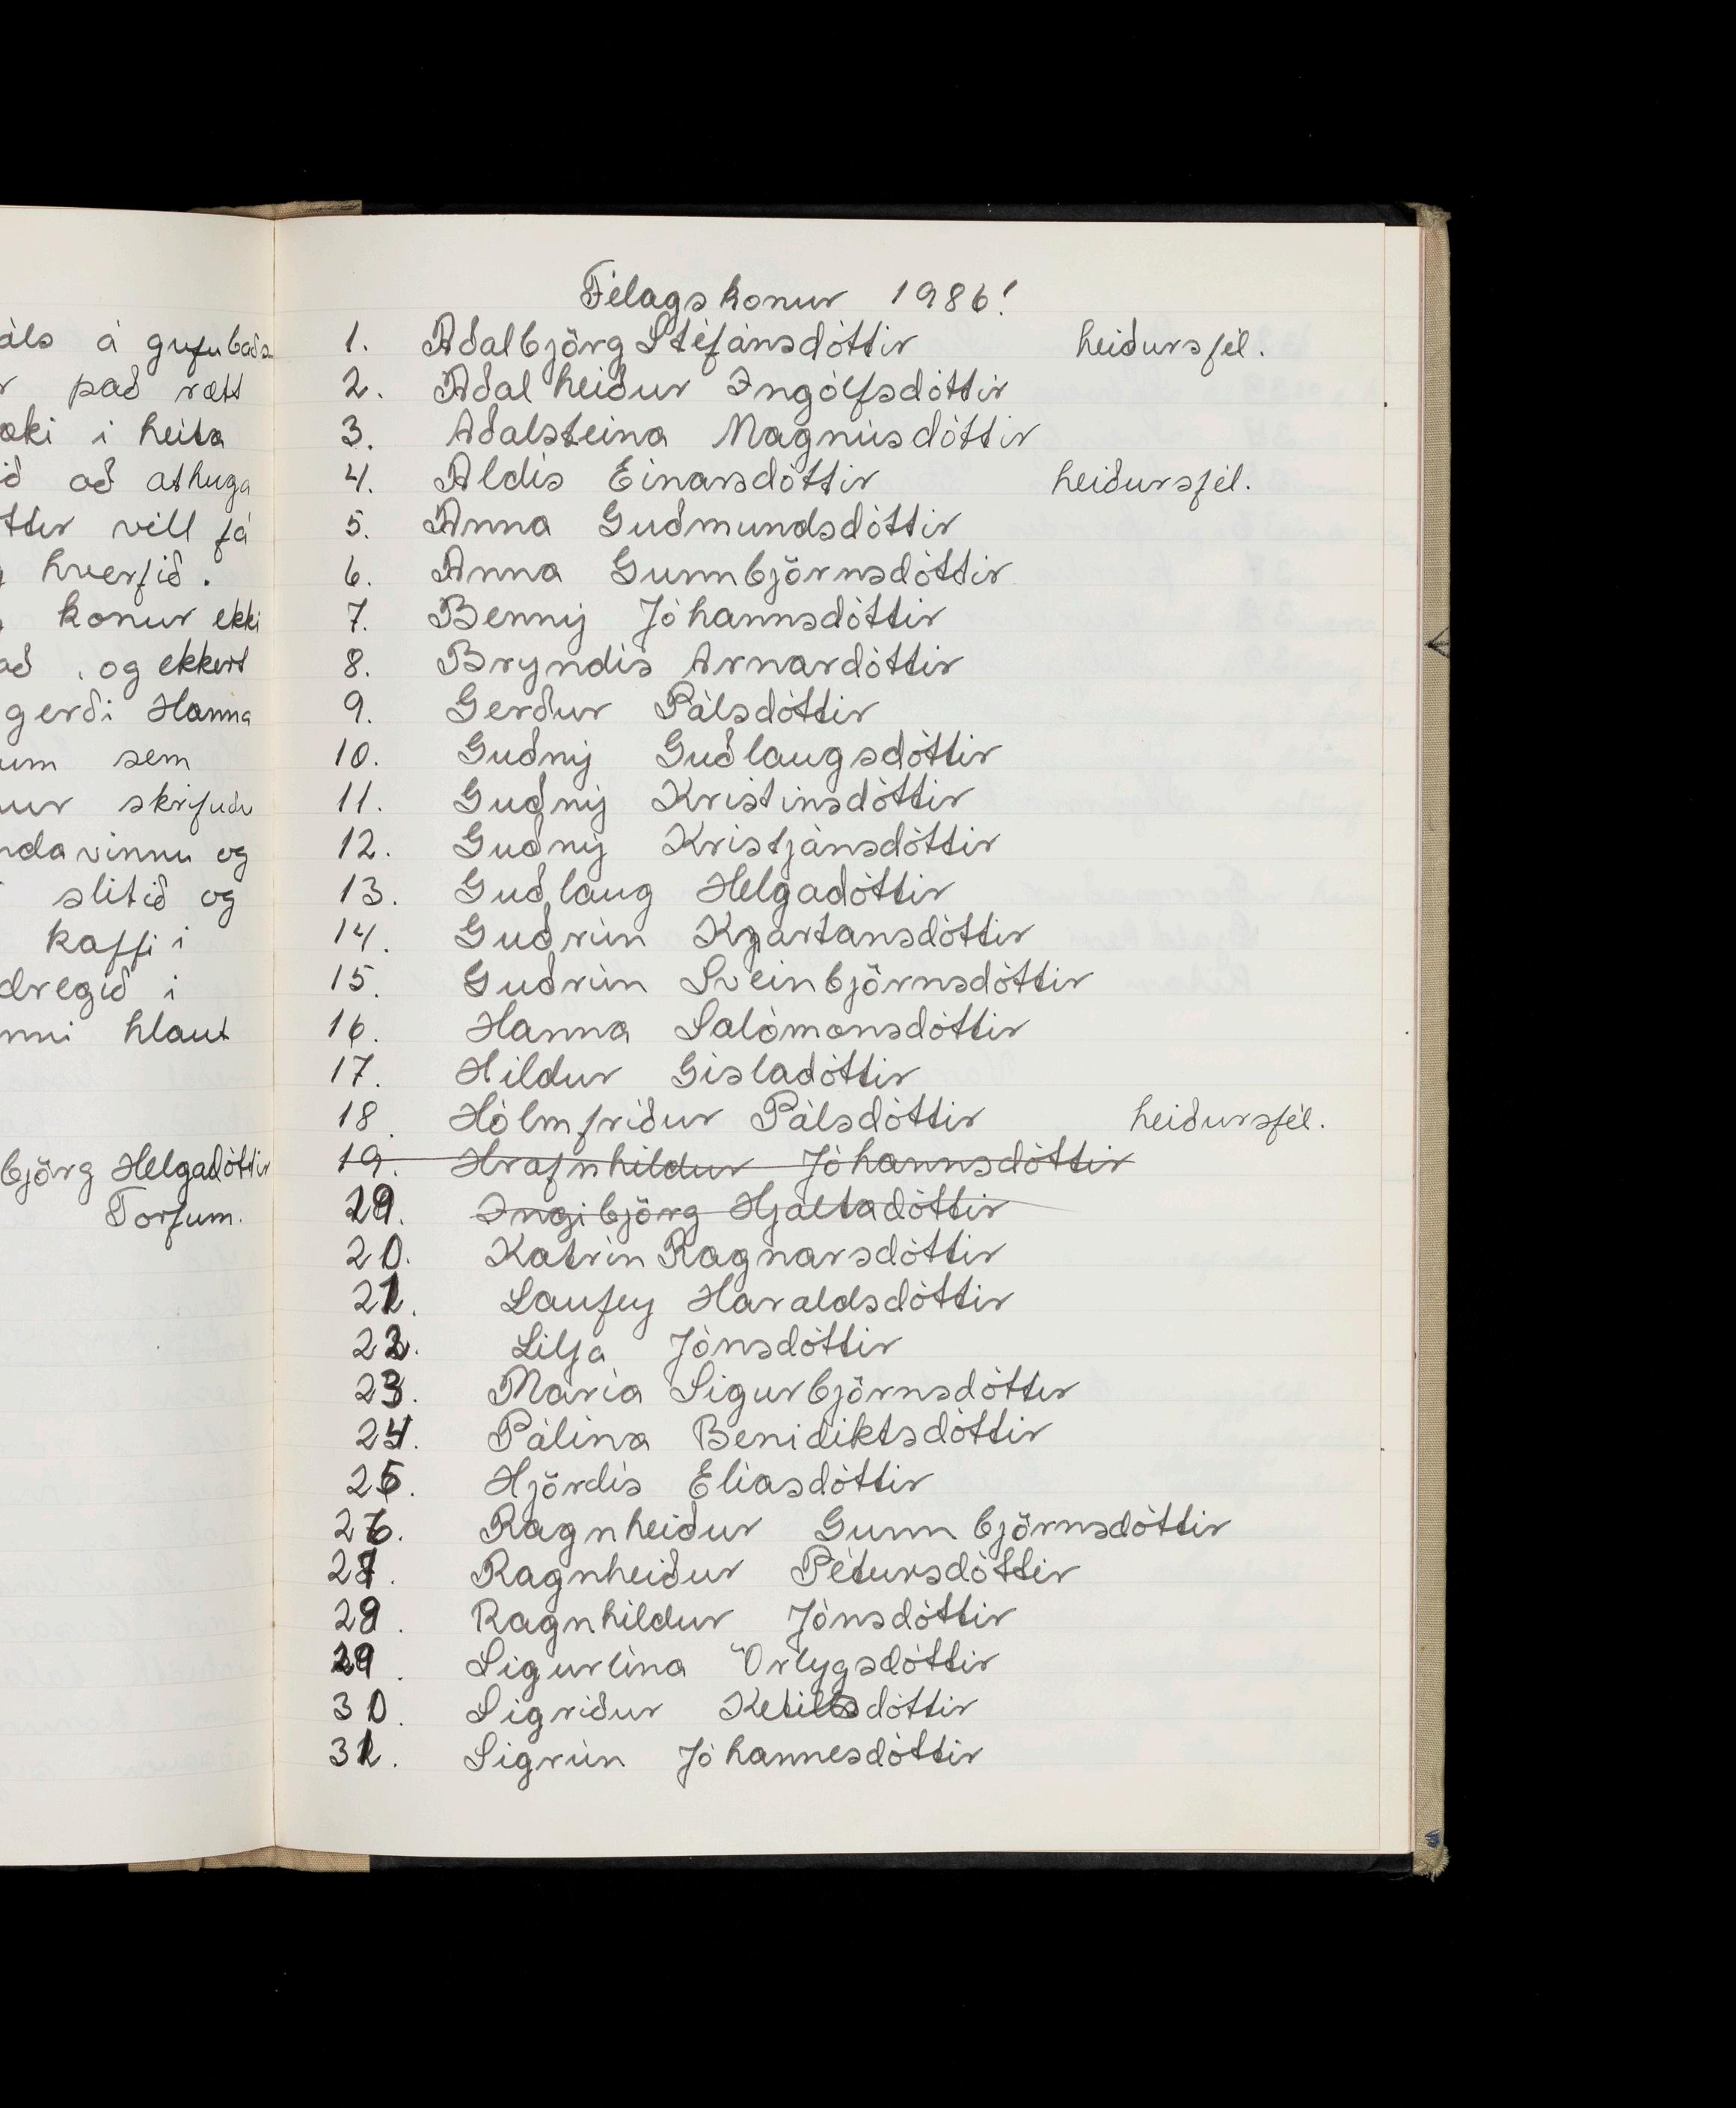 áls á gufubaðs
r það rætt
æki í heita
ið að athuga
ttir vill fá
hverfið.
konur ekki
að, og ekkert
gerði Hanna
um sem
ur skrifuðu
ndavinnu og
slitið og
kaffi í
dregið í
nni hlaut
björg Helgadóttir
Torfum.
Félagskonur 1986!
1. Aðalbjörg Stéfánsdóttir heiðursfél.
2. Aðalheiður Ingólfsdóttir
3. Aðalsteina Magnúsdóttir
4. Aldís Einarsdóttir heiðursfél.
5. Anna Guðmundsdóttir
6. Anna Gunnbjörnsdóttir
7. Benný Jóhannsdóttir
8. Bryndís Arnardóttir
9. Gerður Pálsdóttir
10. Guðný Guðlaugsdóttir
11. Guðný Kristinsdóttir
12. Guðný Kristjánsdóttir
13. Guðlaug Helgadóttir
14. Guðrún Kjartansdóttir
15. Guðrún Sveinbjörnsdóttir
16. Hanna Salómonsdóttir
17. Hildur Gísladóttir
18. Hólmfríður Pálsdóttir heiðursfél.
19. Hrafnhildur Jóhannsdóttir
19. Ingibjörg Hjaltadóttir
20. Katrín Ragnarsdóttir
21. Laufey Haraldsdóttir
22. Lilja Jónsdóttir
23. María Sigurbjörnsdóttir
24. Pálína Benidiktsdóttir
25. Hjördís Elíasdóttir
26. Ragnheiður Gunnbjörnsdóttir
27. Ragnheiður Pétursdóttir
28. Ragnhildur Jónsdóttir
29. Sigurlína Örlygsdóttir
30. Sigríður Ketilsdóttir
31. Sigrún Jóhannesdóttir